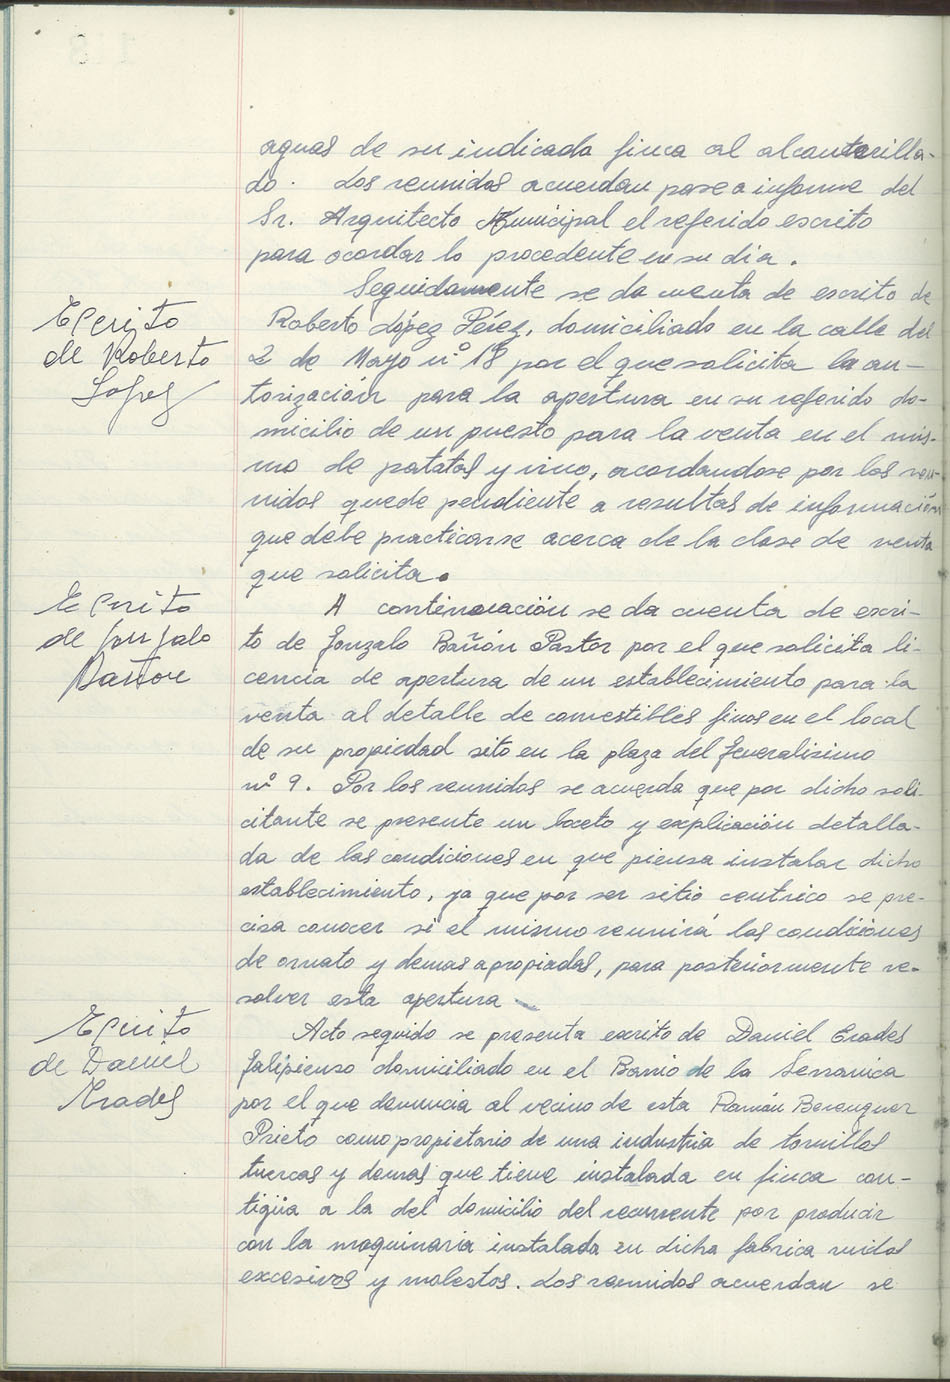 aguas de su indicada finca al alcantarilla-
do. Los reunidos acuerdan pase a informe del
Sr. Arquitecto Municipal el referido escrito
para acordar lo procedente en su dia.
Escrito
de Roberto
Lopez
Seguidamente se da cuenta de escrito de
Roberto López Pérez, domiciliado en la calle del
2 de Mayo nº 18 por el que solicita la au-
torización para la apertura en su referido do-
micilio de un puesto para la venta en el mis-
mo de patatas y vino, acordandose por los reu-
nidos quede pendiente a resultas de información
que debe practicarse acerca de la clase de venta
que solicita.
Escrito
de Gonzalo
Bañon
A continuación se da cuenta de escri-
to de Gonzalo Bañón Pastor por el que solicita li-
cencia de apertura de un establecimiento para la
venta al detalle de comestibles finos en el local
de su propiedad sito en la plaza del Generalisimo
nº 9. Por los reunidos se acuerda que por dicho soli-
citante se presente un boceto y explicación detalla-
da de las condiciones en que piensa instalar dicho
establecimiento, ya que por ser sitio centrico se pre-
cisa conocer si el mismo reunirá las condiciones
de ornato y demas apropiadas, para posteriormente re-
solver esta apertura
Escrito
de Daniel
Erades
Acto seguido se presenta escrito de Daniel Erades
Galipienso domiciliado en el Barrio de la Serranica
por el que denuncia al vecino de esta Ramón Berenguer
Prieto como propietario de una industria de tornillos
tuercas y demas que tiene instalada en finca con-
tigüa a la del domicilio del recurrente por producir
con la maquinaria instalada en dicha fabrica ruidos
excesivos y molestos. Los reunidos acuerdan se